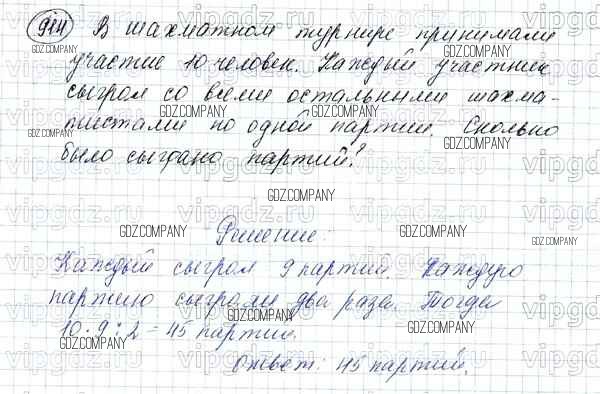 914 В шахматном турнире принимали
участие 10 человек. Каждый участник
сыграл со всеми остальными шахма-
тистами по одной партии. Сколько
было сыграно партий?
Решение:
Каждый сыграл 9 партий. Каждую
партию сыграли два раза. Тогда
10 · 9 : 2 = 45 партий.
Ответ: 45 партий.